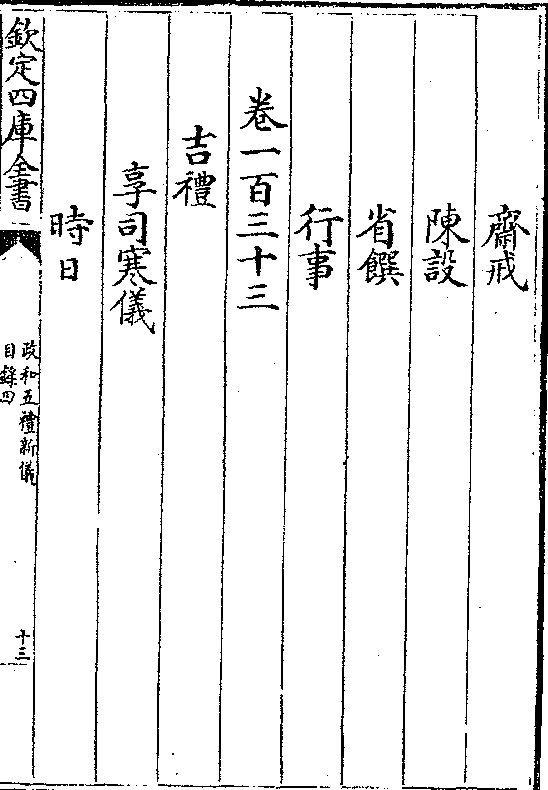 齋戒
陳設
省饌
行事
卷一百三十三
吉禮
享司寒儀
時日
欽定四庫全書
政和五禮新儀
目錄四
十三